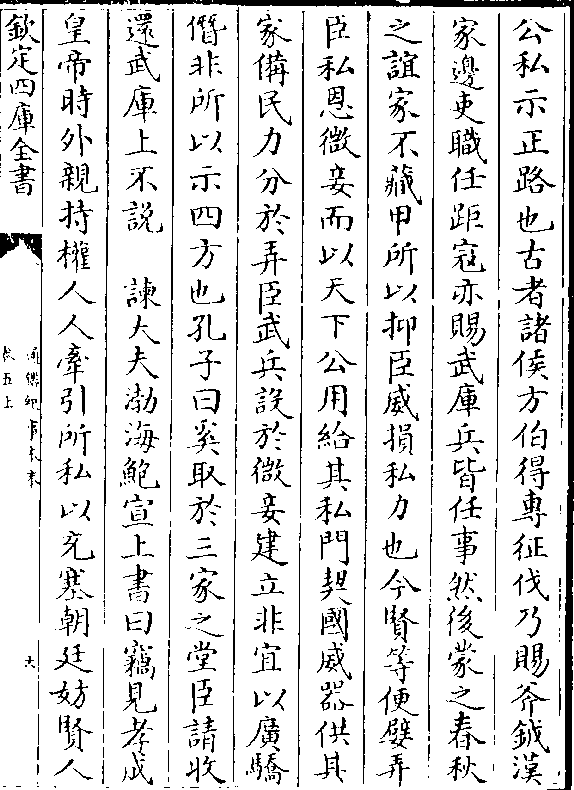 公私示正路也古者諸侯方伯得專征伐乃賜斧鉞漢
家邊吏職任距寇亦賜武庫兵皆任事然後蒙之春秋
之誼家不藏甲所以抑臣威損私力也今賢等便嬖弄
臣私恩微妾而以天下公用給其私門契國威器供其
家備民力分於弄臣武兵設於微妾建立非宜以廣驕
僭非所以示四方也孔子曰奚取於三家之堂臣請收
還武庫上不説　諫大夫渤海鮑宣上書曰竊見孝成
皇帝時外親持權人人牽引所私以充塞朝廷妨賢人
欽定四庫全書
通鑑紀事本末
卷五上